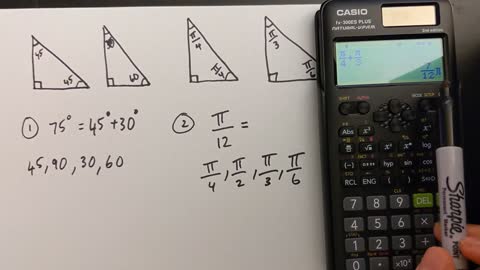 45
45
30
60
π/4
π/4
π/3
π/6
① 75° = 45° + 30°
45, 90, 30, 60
② π/12 =
π/4 , π/2 , π/3 , π/6
CASIO
fx-300ES PLUS
2nd edition
NATURAL-V.P.A.M.
π/4+π/3
7/12π
SHIFT
ALPHA
ON
Abs
x³
hyp
sin
cos
tan
RCL
ENG
(
)
M+
7
8
9
DEL
AC
4
5
6
×
÷
1
2
3
+
−
0
.
×10ˣ
Sharpie